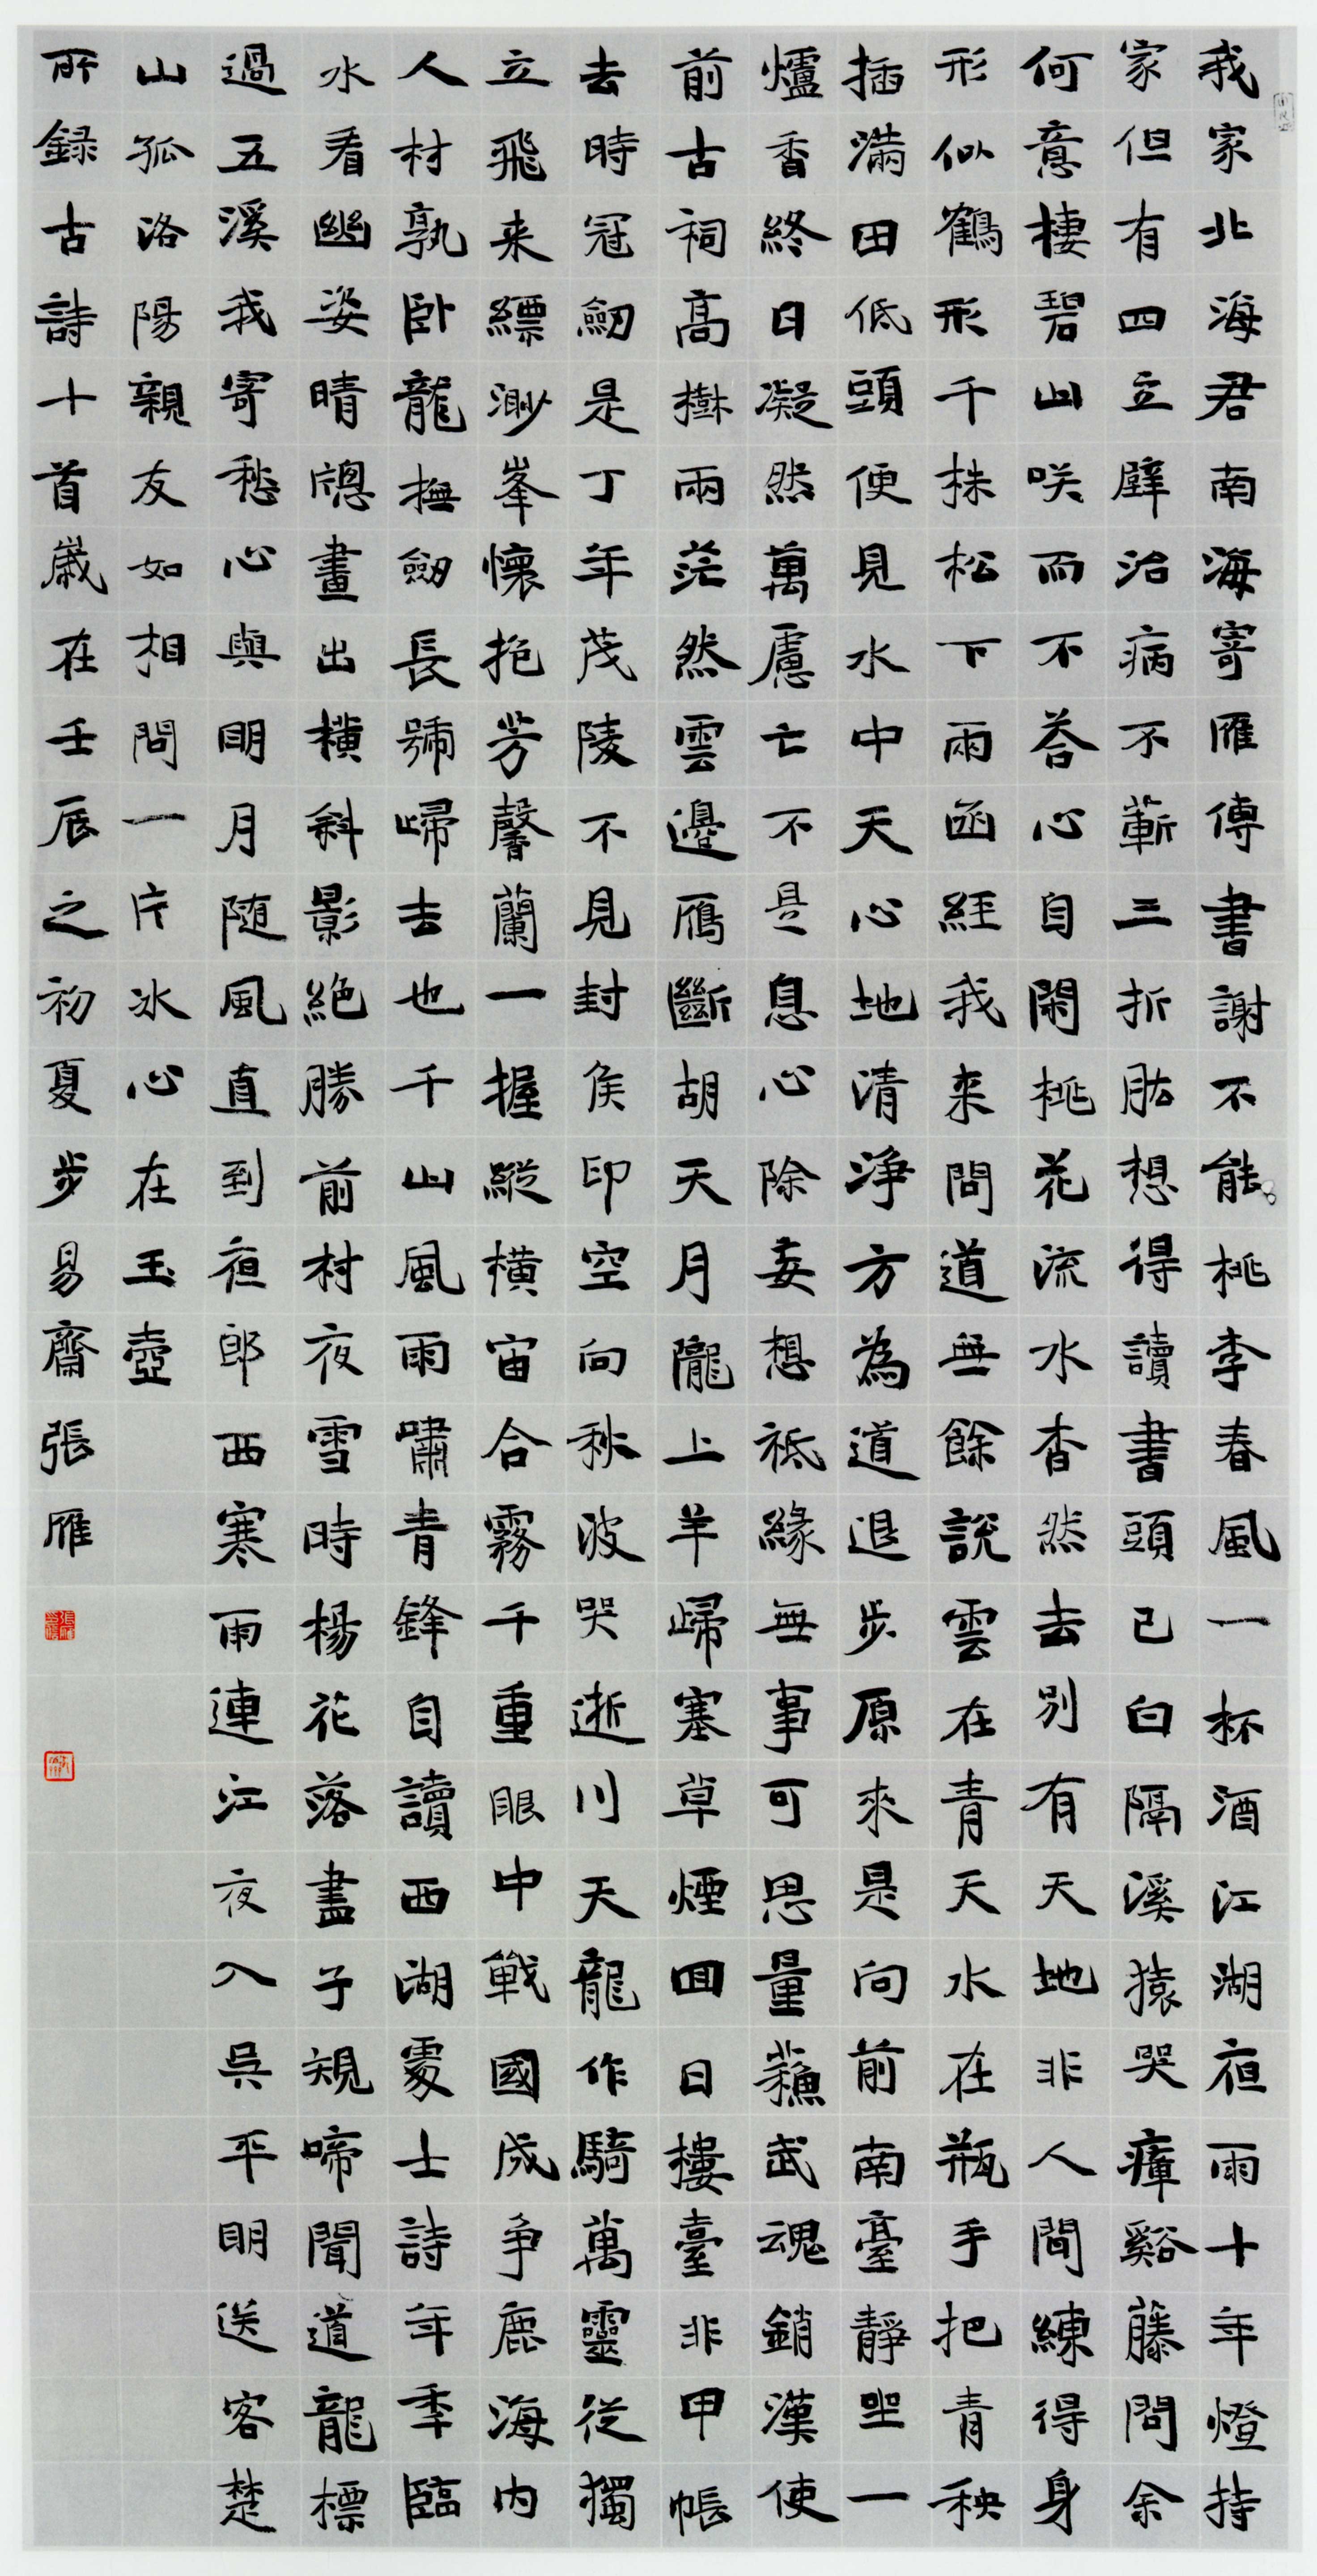 我家北海君南海寄雁傳書謝不能桃李春風一杯酒江湖夜雨十年燈持
家但有四立壁治病不蘄三折肱想得讀書頭已白隔溪猿哭瘴谿藤問余
何意棲碧山咲而不荅心自閑桃花流水杳然去別有天地非人間練得身
形似鶴形千株松下兩函經我来問道無餘說雲在青天水在瓶手把青秧
插滿田低頭便見水中天心地清净方為道退步原來是向前南臺靜坐一
爐香終日凝然萬慮亡不是息心除妄想祗緣無事可思量蘇武魂銷漢使
前古祠高樹兩茫然雲邊鴈斷胡天月隴上羊歸塞草煙囬日樓臺非甲帳
去時冠劒是丁年茂陵不見封侯印空向秋波哭逝川天龍作騎萬靈從獨
立飛来縹渺峯懷抱芳馨蘭一握縱橫宙合霧千重眼中戰國成争鹿海内
人材孰卧龍撫劒長號歸去也千山風雨嘯青鋒自讀西湖處士詩年年臨
水看幽姿晴牕畫出橫斜影絶勝前村夜雪時楊花落盡子規啼聞道龍標
過五溪我寄愁心與明月随風直到夜郎西寒雨連江夜入吳平明送客楚
山孤洛陽親友如相問一片冰心在玉壺
所録古詩十首歲在壬辰之初夏步易齋張雁